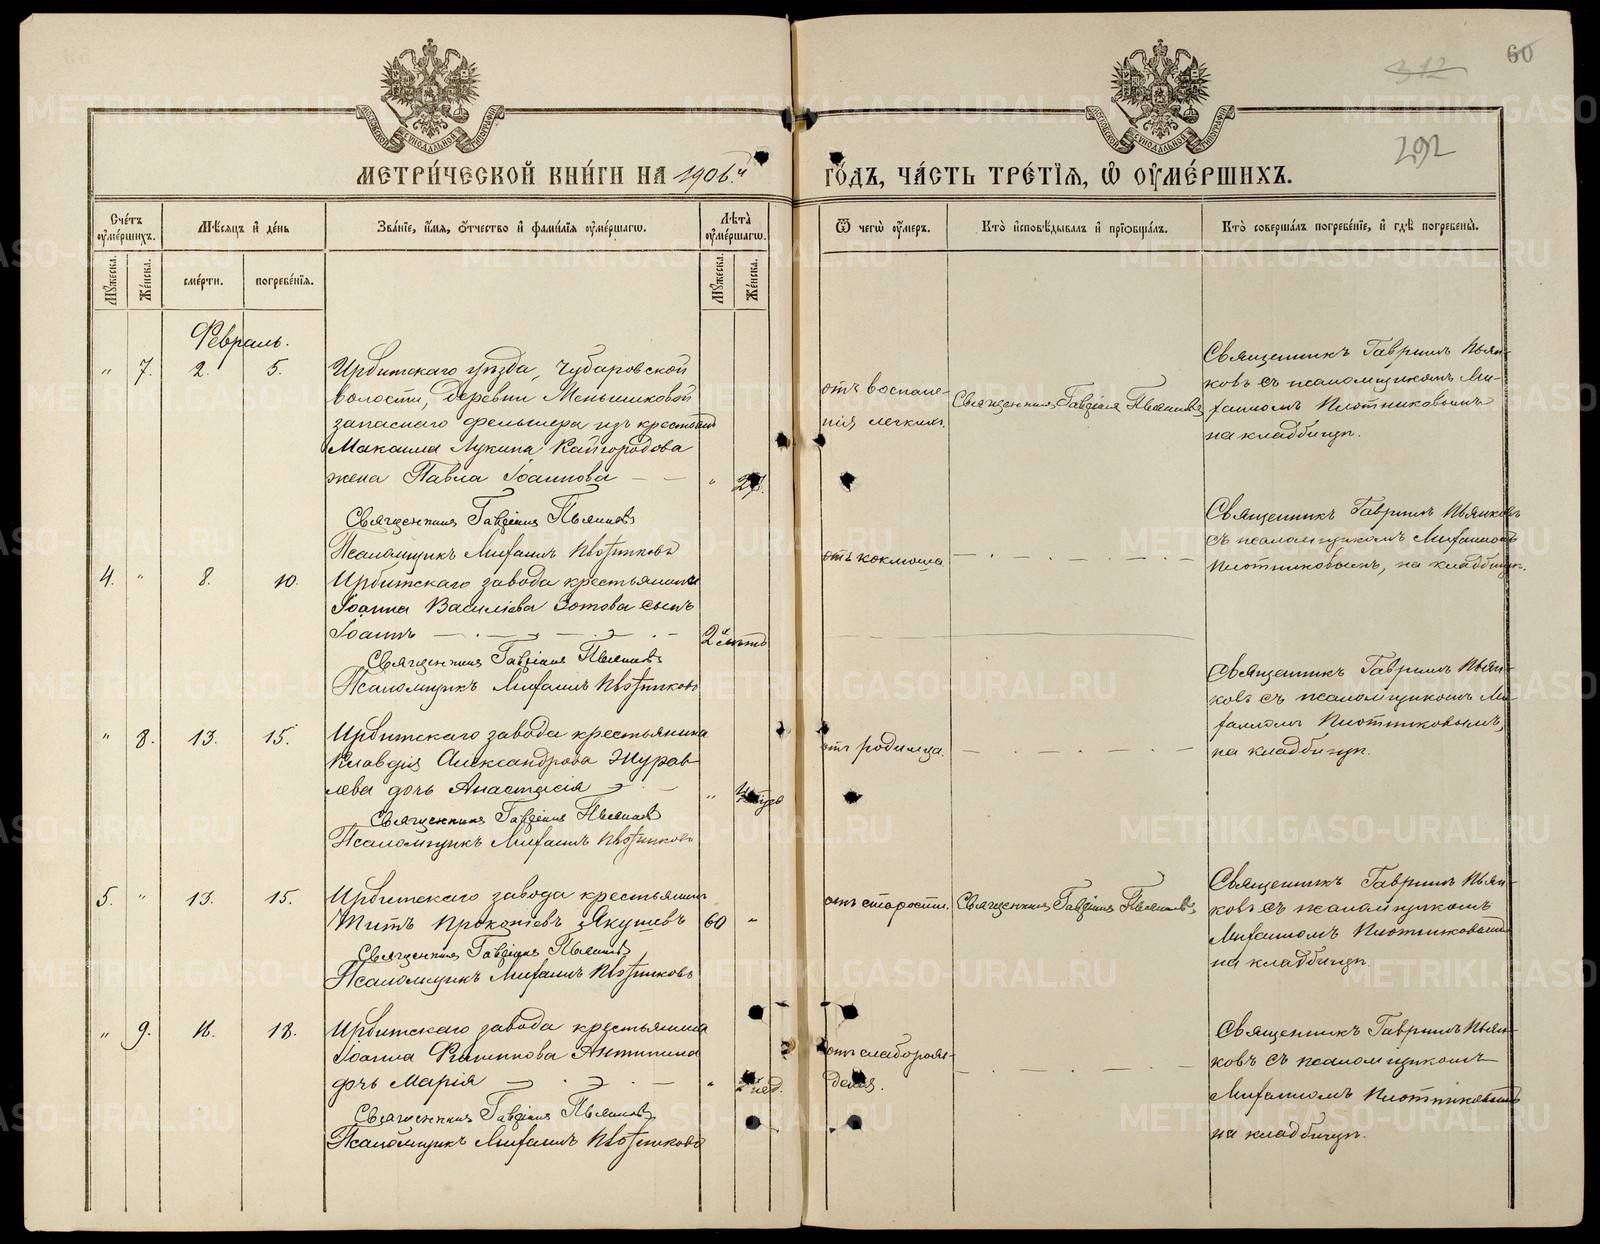 60
312
292
МЕТРИ́ЧЕСКОЙ КНИ́ГИ НА 1906.й ГО́ДЪ, ЧА́СТЬ ТРЕ́ТІЯ, Ѿ ОУМЕ́РШИХЪ.
Сче́тъ оуме́ршихъ.
Мѣ́сяцъ и де́нь
Зва́ніе, и́мя, о́тчество и фами́лія оуме́ршагѡ.
Лѣ́та оуме́ршагѡ.
Ѿ чегѡ̀ оу́меръ.
Кто̀ исповѣ́дывалъ и пріѡбща́лъ.
Кто̀ соверша́лъ погребе́ніе, и гдѣ̀ погребены̀.
Му́жеска.
Же́нска.
сме́рти.
погребе́нія.
Му́жеска.
Же́нска.
Февраль.
" 7. 2. 5.
Ирбитскаго уѣзда, Чубаровской
волости, деревни Меньшиковой
запаснаго фельдшера изъ крестьянъ
Максима Лукина Кайгородова
жена Павла Іоаннова — — "
отъ воспале-
нія легкихъ.
Священникъ Гавріилъ Пьянковъ
Священникъ Гавріилъ Пьян-
ковъ съ псаломщикомъ Ми-
хаиломъ Плотниковымъ
на кладбищѣ.
Священникъ Гавріилъ Пьянковъ
Псаломщикъ Михаилъ Плотниковъ
4. " 8. 10.
Ирбитскаго завода крестьянина
Іоанна Василіева Зотова сынъ
Іоаннъ 2 лѣтъ
отъ коклюша
Священникъ Гавріилъ Пьянковъ
съ псаломщикомъ Михаиломъ
Плотниковымъ, на кладбищѣ.
Священникъ Гавріилъ Пьянковъ
Псаломщикъ Михаилъ Плотниковъ
" 8. 13. 15.
Ирбитскаго завода крестьянина
Клавдія Александрова Журав-
лева дочь Анастасія "
отъ родимца.
Священникъ Гавріилъ Пьян-
ковъ съ псаломщикомъ Ми-
хаиломъ Плотниковымъ,
на кладбищѣ.
Священникъ Гавріилъ Пьянковъ
Псаломщикъ Михаилъ Плотниковъ
5. " 13. 15.
Ирбитскаго завода крестьянинъ
Титъ Прокопіевъ Якушевъ 60 "
отъ старости.
Священникъ Гавріилъ Пьянковъ
Священникъ Гавріилъ Пьян-
ковъ съ псаломщикомъ
Михаиломъ Плотниковымъ
на кладбищѣ.
Священникъ Гавріилъ Пьянковъ
Псаломщикъ Михаилъ Плотниковъ
" 9. 16. 18.
Ирбитскаго завода крестьянина
Іоанна Филиппова Антипина
дочь Марія " 2 нед.
отъ слаборож-
денія.
Священникъ Гавріилъ Пьян-
ковъ съ псаломщикомъ
Михаиломъ Плотниковымъ
на кладбищѣ.
Священникъ Гавріилъ Пьянковъ
Псаломщикъ Михаилъ Плотниковъ
METRIKI.GASO-URAL.RU